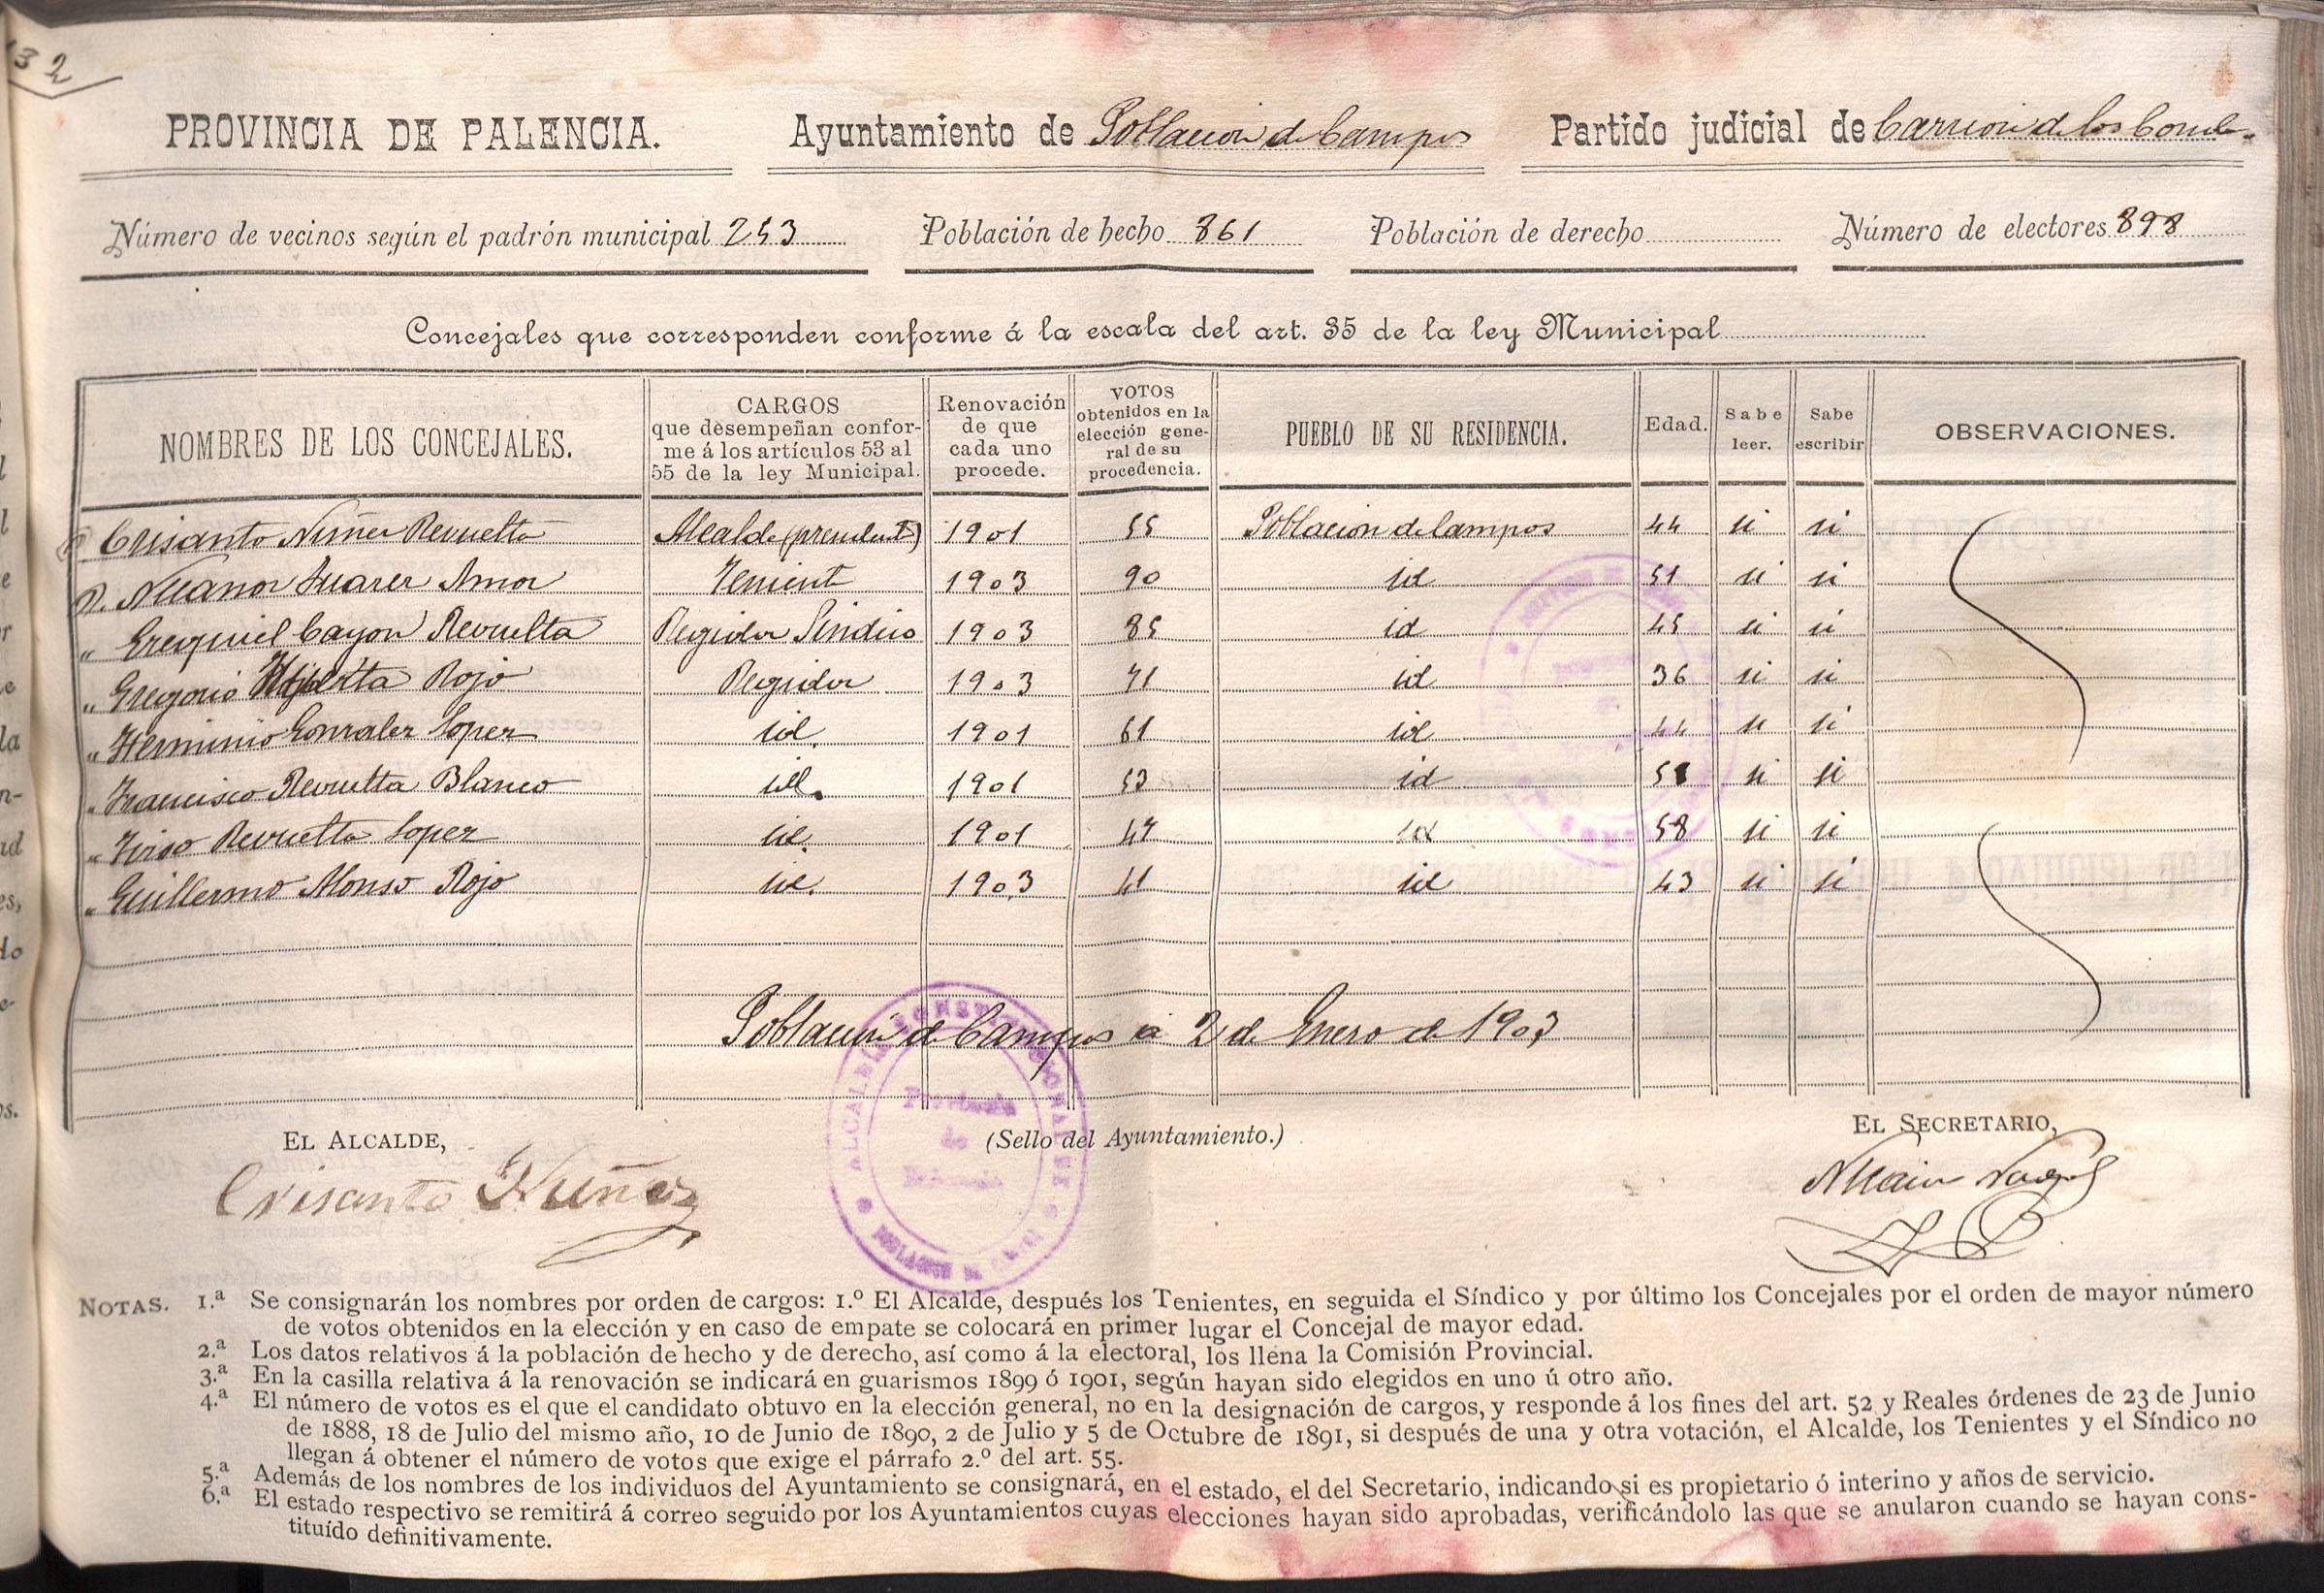 32
PROVINCIA DE PALENCIA. Ayuntamiento de Poblacion de Campos Partido judicial de Carrion de los Conde
Número de vecinos según el padrón municipal 253 Población de hecho 861 Población de derecho Número de electores 898
Concejales que corresponden conforme á la escala del art. 35 de la ley Municipal
NOMBRES DE LOS CONCEJALES. CARGOS que desempeñan conforme á los artículos 53 al 55 de la ley Municipal. Renovación de que cada uno procede. VOTOS obtenidos en la elección general de su procedencia. PUEBLO DE SU RESIDENCIA. Edad. Sabe leer. Sabe escribir OBSERVACIONES.
Crisanto Nuñez Revuelta Alcalde (presidente) 1901 55 Poblacion de Campos 44 si si
D. Nicanor Suarez Amor Teniente 1903 90 id 51 si si
" Ezequiel Cayon Revuelta Regidor Sindico 1903 85 id 45 si si
" Gregorio Rojo Regidor 1903 71 id 36 si si
" Herminio Gonzalez Lopez id. 1901 61 id 44 si si
" Francisco Revuelta Blanco id. 1901 53 id si si
" Tirso Revuelta Lopez id. 1901 47 id 58 si si
" Guillermo Alonso Rojo id. 1903 41 id 43 si si
Poblacion de Campos a 2 de Enero de 1903
EL ALCALDE, (Sello del Ayuntamiento.) EL SECRETARIO,
Crisanto Nuñez
ALCALDIA CONSTITUCIONAL DE
NOTAS. 1.ª Se consignarán los nombres por orden de cargos: 1.º El Alcalde, después los Tenientes, en seguida el Síndico y por último los Concejales por el orden de mayor número
de votos obtenidos en la elección y en caso de empate se colocará en primer lugar el Concejal de mayor edad.
2.ª Los datos relativos á la población de hecho y de derecho, así como á la electoral, los llena la Comisión Provincial.
3.ª En la casilla relativa á la renovación se indicará en guarismos 1899 ó 1901, según hayan sido elegidos en uno ú otro año.
4.ª El número de votos es el que el candidato obtuvo en la elección general, no en la designación de cargos, y responde á los fines del art. 52 y Reales órdenes de 23 de Junio
de 1888, 18 de Julio del mismo año, 10 de Junio de 1890, 2 de Julio y 5 de Octubre de 1891, si después de una y otra votación, el Alcalde, los Tenientes y el Síndico no
llegan á obtener el número de votos que exige el párrafo 2.º del art. 55.
5.ª Además de los nombres de los individuos del Ayuntamiento se consignará, en el estado, el del Secretario, indicando si es propietario ó interino y años de servicio.
6.ª El estado respectivo se remitirá á correo seguido por los Ayuntamientos cuyas elecciones hayan sido aprobadas, verificándolo las que se anularon cuando se hayan cons-
tituído definitivamente.